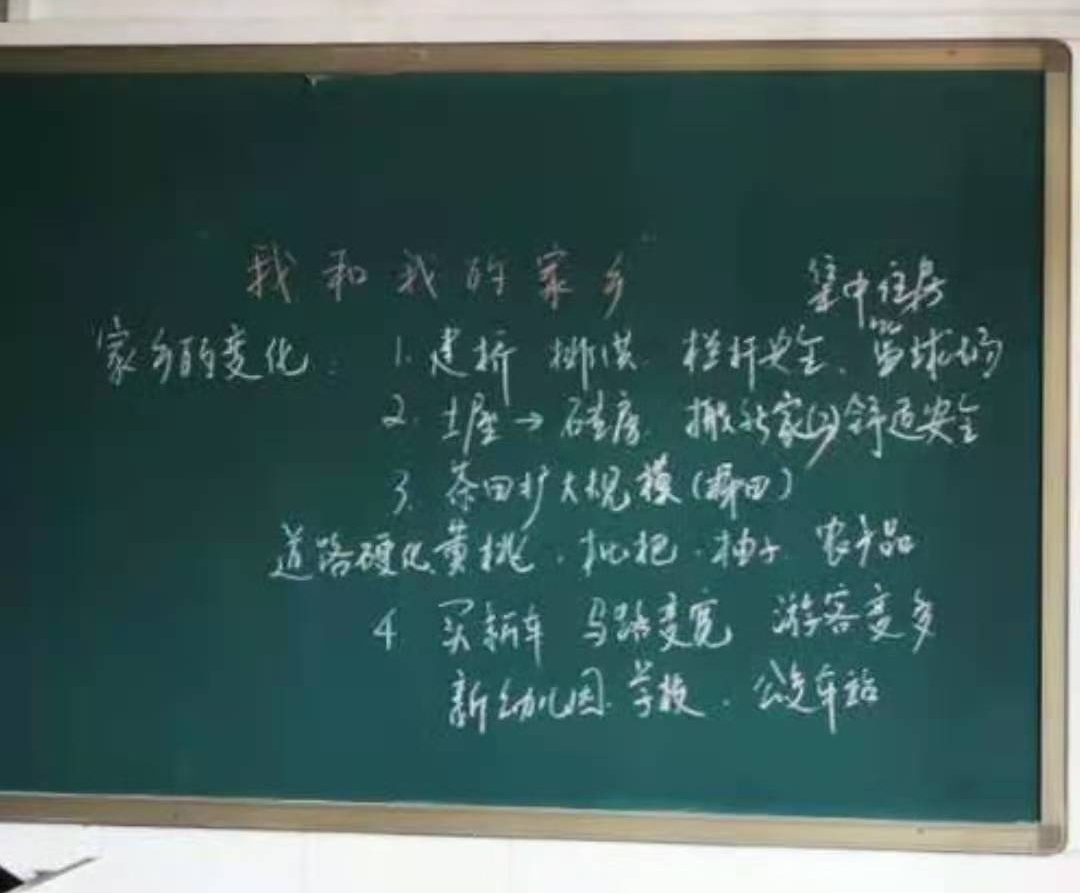 我和我的家乡
集中住房
家乡的变化: 1. 建桥 排洪 栏杆安全、篮球场
2. 土屋→砖房 搬新家(江)舒适安全
3. 茶田扩大规模(梯田)
道路硬化 黄桃.枇杷.柚子 农产品
4 买新车 马路变宽 游客变多
新幼儿园.学校.公交车站